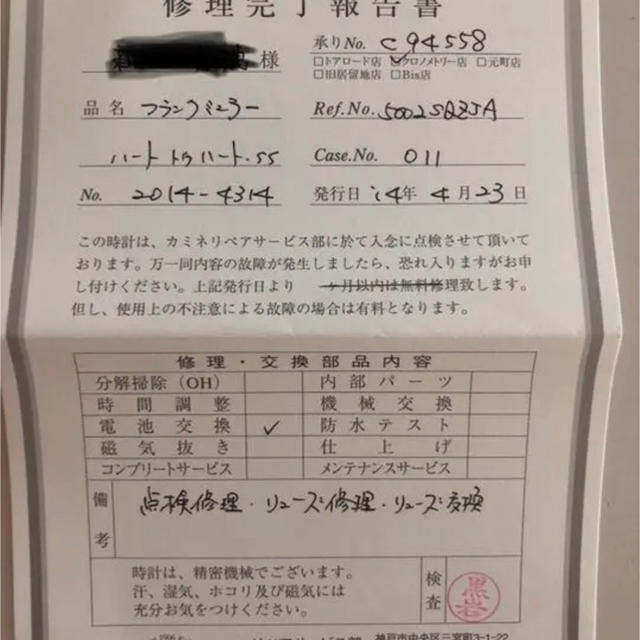 修理完了報告書
様
承りNo. C94558
□トアロード店 ☑クロノメトリー店 □元町店
□旧居留地店 □Bis店
品名 フランクミュラー
Ref.No. 5002SQZ5A
ハート トゥ ハート.SS
Case.No. 011
No. 2014-4314
発行日 '14年 4月23日
この時計は、カミネリペアサービス部に於て入念に点検させて頂いて
おります。万一同内容の故障が発生しましたら、恐れ入りますがお申
し付けください。上記発行日より 一ヶ月以内は無料修理致します。
但し、使用上の不注意による故障の場合は有料となります。
修理・交換部品内容
分解掃除(OH) 内部パーツ
時間調整 機械交換
電池交換 ✓ 防水テスト
磁気抜き 仕上げ
コンプリートサービス メンテナンスサービス
備考 点検修理・リューズ修理・リューズ交換
時計は、精密機械でございます。
汗、湿気、ホコリ及び磁気には
充分お気をつけください。
検査 黒岩
神戸市中央区三宮町3-1-22